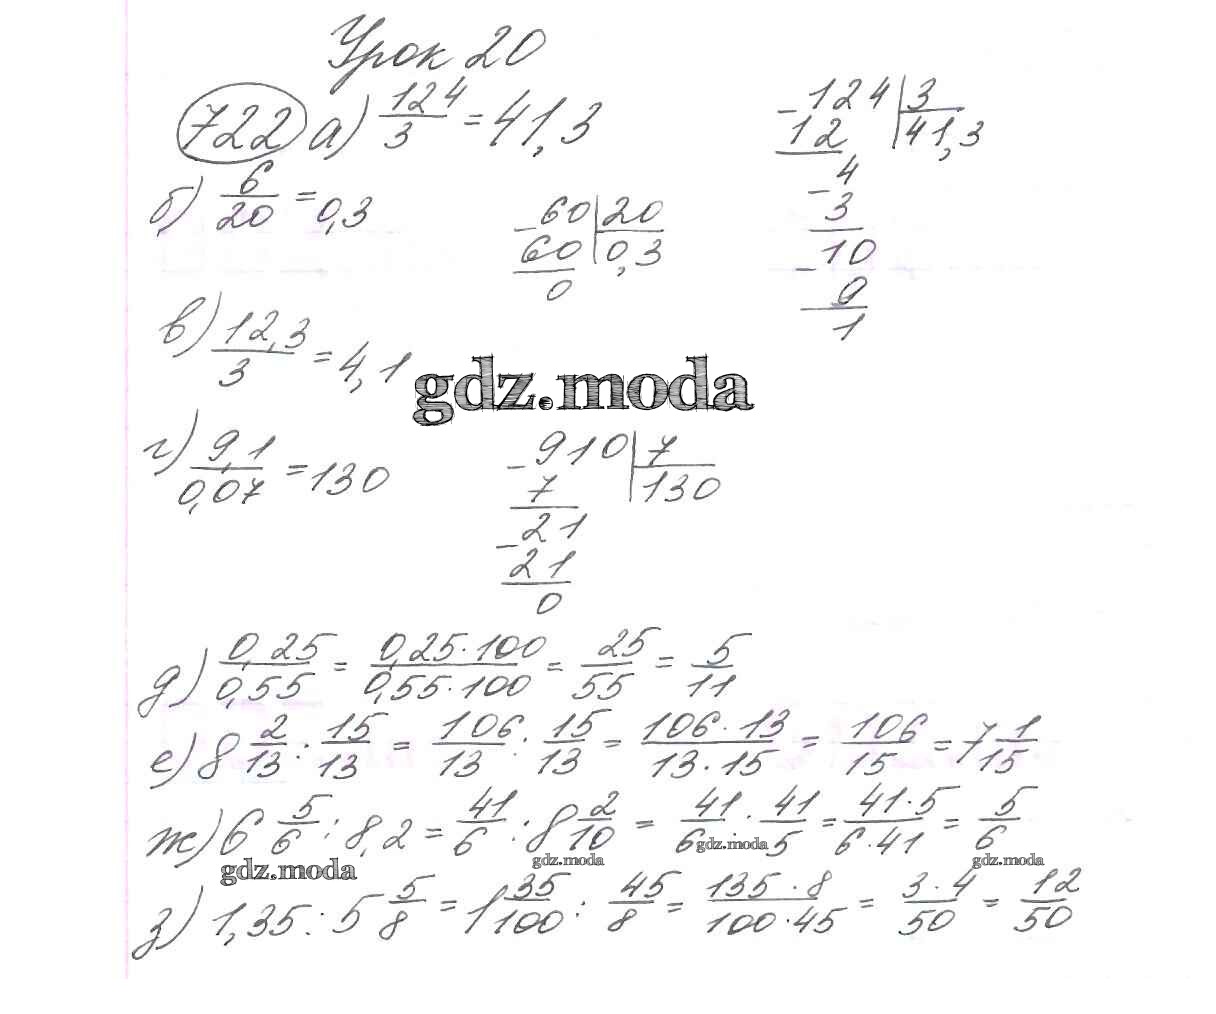 Урок 20
722 а) 124/3 = 41,3
124 | 3
12 | 41,3
4
3
10
9
1
б) 6/20 = 0,3
60 | 20
60 | 0,3
0
в) 12,3/3 = 4,1
gdz.moda
г) 9,1/0,07 = 130
910 | 7
7 | 130
21
21
0
д) 0,25/0,55 = 0,25·100/0,55·100 = 25/55 = 5/11
е) 8 2/13 : 15/13 = 106/13 : 15/13 = 106·13/13·15 = 106/15 = 7 1/15
ж) 6 5/6 : 8,2 = 41/6 : 8 2/10 = 41/6 : 41/5 = 41·5/6·41 = 5/6
gdz.moda gdz.moda gdz.moda gdz.moda
з) 1,35 : 5 5/8 = 1 35/100 : 45/8 = 135·8/100·45 = 3·4/50 = 12/50